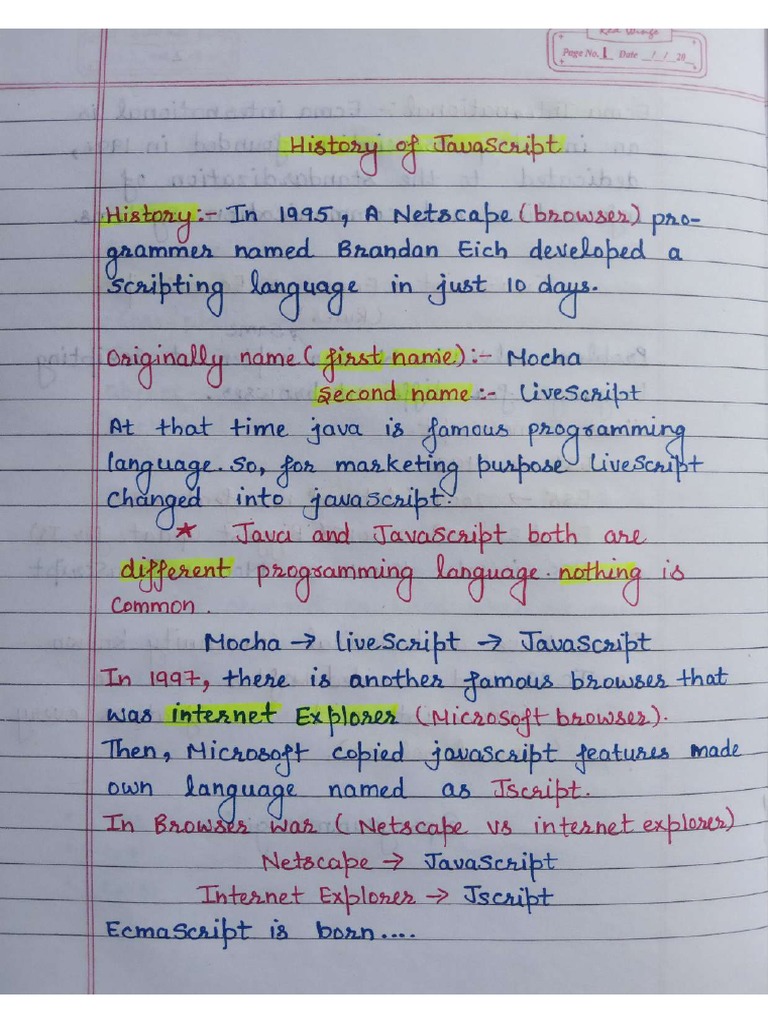 Red Wings
Page No. 1 Date / / 20
History of JavaScript
History:- In 1995, A Netscape (browser) pro-
grammer named Brandan Eich developed a
scripting language in just 10 days.
Originally name (first name):- Mocha
Second name:- LiveScript
At that time java is famous programming
language. So, for marketing purpose LiveScript
changed into javascript.
* Java and JavaScript both are
different programming language. nothing is
common.
Mocha → LiveScript → JavaScript
In 1997, there is another famous browser that
was internet Explorer (Microsoft browser).
Then, Microsoft copied javascript features made
own language named as Jscript.
In Browser war (Netscape vs internet explorer)
Netscape → JavaScript
Internet Explorer → Jscript
EcmaScript is born....